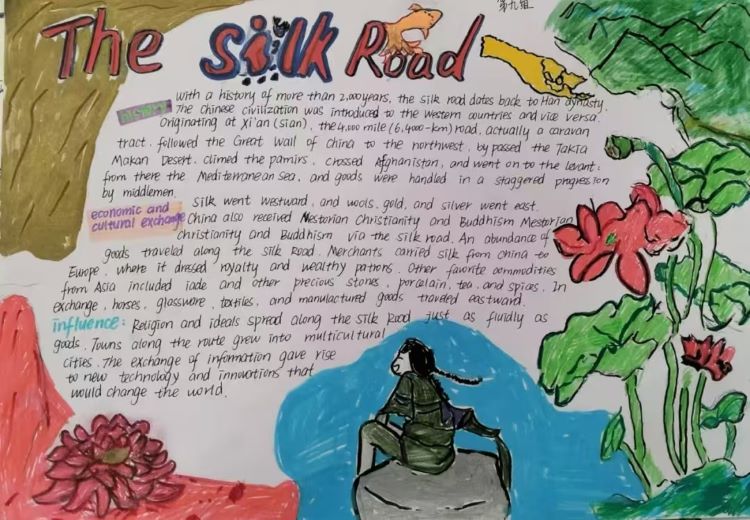 第九组
The Silk Road
history: with a history of more than 2,000 years, the silk road dates back to Han dynasty.
The Chinese civilization was introduced to the western countries and vice versa.
Originating at Xi'an (sian), the 4,000 mile (6,400-km) road, actually a caravan
tract, followed the Great Wall of China to the northwest, by passed the Takla
Makan Desert, climed the pamirs, crossed Afghanistan, and went on to the levant;
from there the Mediterranean Sea, and goods were handled in a staggered progression
by middlemen.
Silk went westward, and wools, gold, and silver went east.
economic and
cultural exchange China also received Nestorian Christianity and Buddhism Mestorian
christianity and Buddhism via the silk road. An abundance of
goods traveled along the silk Road. Merchants carried silk from China to
Europe, where it dressed royalty and wealthy patrons. Other favorite commodities
from Asia included iade and other precious stones, porcelain, tea, and spices. In
exchange, horses, glassware, textiles, and manufactured goods traveled eastward.
influence: Religion and ideals spread along the Silk Road just as fluidly as
goods. Towns along the route grew into multicultural
cities. The exchange of information gave rise
to new technology and innovations that
would change the world.